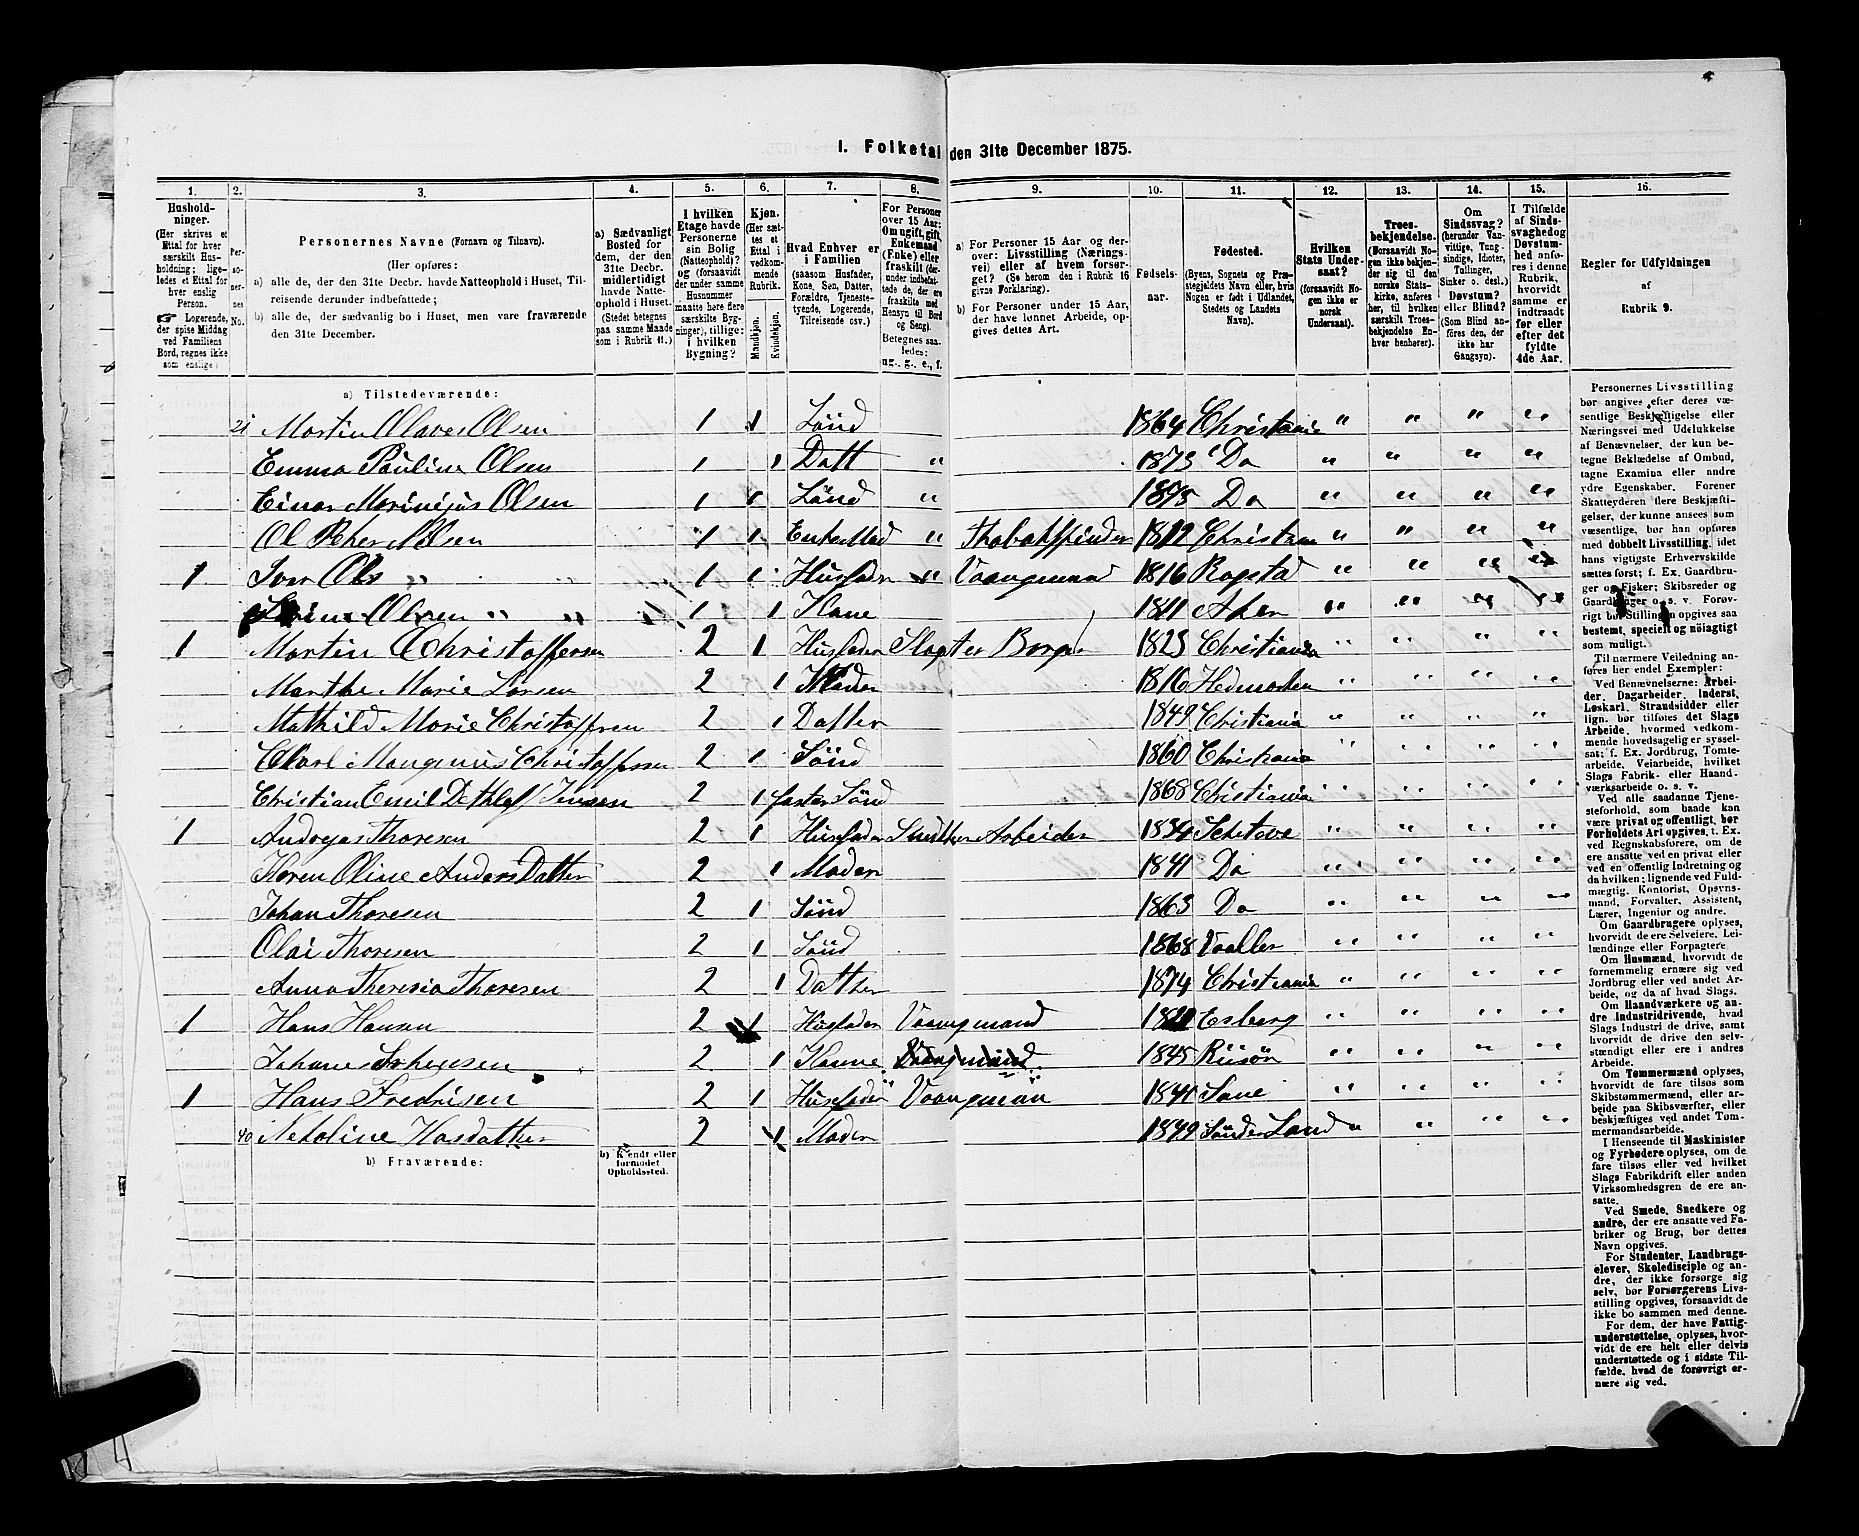 I. Folketal den 31te December 1875.
1. 2. 3. 4. 5. 6. 7. 8. 9. 10. 11. 12. 13. 14. 15. 16.
Husholdninger. (Her skrives et Ettal for hver særskilt Husholdning; ligeledes et Ettal for hver enslig Person. ☞ Logerende, der spise Middag ved Familiens Bord, regnes ikke som enslige.)
Personernes No.
Personernes Navne (Fornavn og Tilnavn).
(Her opføres:
a) alle de, der den 31te Decbr. havde Natteophold i Huset, Tilreisende derunder indbefattede;
b) alle de, der sædvanlig bo i Huset, men vare fraværende den 31te December.
a) Sædvanligt Bosted for dem, der den 31te Decbr. midlertidigt havde Natteophold i Huset. (Stedet betegnes paa samme Maade som i Rubrik 11.)
I hvilken Etage havde Personerne sin Bolig (Natteophold)? og (forsaavidt der under samme Husnummer maatte høre flere særskilte Bygninger), tillige: i hvilken Bygning?
Kjøn. (Her sættes et Ettal i vedkommende Rubrik. Mandkjøn. Kvindekjøn.
Hvad Enhver er i Familien (saasom Husfader, Kone, Søn, Datter, Forældre, Tjenestetyende, Logerende, Tilreisende osv.)
For Personer over 15 Aar: Om ugift, gift, Enkemand (Enke) eller fraskilt (derunder indbefattede de, der ere fraskilte med Hensyn til Bord og Seng). Betegnes saaledes: ug., g., e., f.
a) For Personer 15 Aar og derover: Livsstilling (Næringsvei) eller af hvem forsørget? (Se herom den i Rubrik 16 givne Forklaring).
b) For Personer under 15 Aar, der have lønnet Arbeide, opgives dettes Art.
Fødselsaar.
Fødested. (Byens, Sognets og Præstegjeldets Navn eller, hvis Nogen er født i Udlandet, Stedets og Landets Navn).
Hvilken Stats Undersaat? (forsaavidt Nogen ikke er norsk Undersaat).
Troesbekjendelse. (Forsaavidt Nogen ikke bekjender sig til den norske Statskirke, anføres her, til hvilken særskilt Troesbekjendelse Enhver henhører).
Om Sindssvag? (herunder Vanvittige, Tungsindige, Idioter, Tullinger, Sinker o. desl.) Døvstum? eller Blind? (Som Blind anføres den, der ikke har Gangsyn).
I Tilfælde af Sindssvaghed og Døvstumhed anføres i denne Rubrik, hvorvidt samme er indtraadt før eller efter det fyldte 4de Aar.
Regler for Udfyldningen af Rubrik 9.
a) Tilstedeværende:
21 Martin Olaves Olsen 1 1 Sønd 1864 Christiania " " " "
Emma Pauline Olsen 1 1 Datt " 1873 Do " " " "
Einar Marinijus Olsen 1 1 Sønd " 1875 Do " " " "
Ol Peter Nilsen 1 1 EnkeMad " 1812 " " " "
1 Iver Ols " " 1 1 Husfader " Vaangmand 1816 " " " "
Olsen " " 1 1 Kone 1811 Aker " " " "
1 Martin Christoffersen 2 1 Husfader Slagter Borger 1823 Christiania " " " "
Marthe Marie Larsen 2 1 Mader 1816 Hedmarken " " " "
Mathild Marie Christoffersen 2 1 Datter 1849 Christiania " " " "
Carl Mangnus Christoffersen 2 1 Sønd 1860 Christiania " " " "
Christian Emil Dethlef Jensen 2 1 foster Sønd 1868 Christiania " " " "
1 Andreas Thoresen 2 1 Husfader Arbeider 1834 " " " "
Karen Oline Anders Datter 2 1 Moder 1841 Do " " " "
Johan Thoresen 2 1 Sønd 1863 Do " " " "
Olai Thoresen 2 1 Sønd 1868 Vaaller " " " "
Anna Theresia Thoresen 2 1 Datter 1874 Christiania " " " "
1 Hans Hansen 2 1 Husfader Vaangmand Esberg " " " "
2 1 Kanne 1845 Riisør " " " "
1 Hans Fredrisen 2 1 Husfader Vaangman 1841 " " " "
40 2 1 Moder 1849 Sønder Land " " " "
b) Fraværende:
b) Kjendt eller formodet Opholdssted.
Personernes Livsstilling
bør angives efter deres væsentlige Beskjæftigelse eller
Næringsvei med Udelukkelse
af Benævnelser, der kun betegne Beklædelse af Ombud,
tagne Examina eller andre
ydre Egenskaber. Forener
Skatteyderen flere Beskjæftigelser, der kunne ansees som
væsentlige, bør han opføres
med dobbelt Livsstilling, idet
hans vigtigste Erhvervskilde
sættes først; f. Ex. Gaardbruger og Fisker; Skibsreder og
Gaardbruger o. s. v. Forøvrigt bør Stillingen opgives saa
bestemt, specielt og nøiagtigt
som muligt.
Til nærmere Veiledning anføres her endel Exempler:
Ved Benævnelserne: Arbeider, Dagarbeider, Inderst,
Løskarl, Strandsidder eller
lign. bør tilføies det Slags
Arbeide, hvormed vedkommende hovedsagelig er sysselsat; f. Ex. Jordbrug, Tomtearbeide, Veiarbeide, hvilket
Slags Fabrik- eller Haandværksarbeide o. s. v.
Ved alle saadanne Tjenesteforhold, som baade kan
være privat og offentligt, bør
Forholdets Art opgives, t. Ex.
ved Regnskabsførere, om de
ere ansatte ved en privat eller
ved en offentlig Indretning og
da hvilken; lignende ved Fuldmægtig, Kontorist, Opsynsmand, Forvalter, Assistent,
Lærer, Ingeniør og andre.
Om Gaardbrugere oplyses,
hvorvidt de ere Selveiere, Leilændinge eller Forpagtere
Om Husmænd, hvorvidt de
fornemmelig ernære sig ved
Jordbrug eller ved andet Arbeide, og da af hvad Slags.
Om Haandværkere og andre Industridrivende, hvad
Slags Industri de drive, samt
hvorvidt de drive den selvstændigt eller ere i andres
Arbeide.
Om Tømmermænd oplyses,
hvorvidt de fare tilsøs som
Skibstømmermænd, eller arbeide paa Skibsværfter, eller
beskjæftiges ved andet Tømmermandsarbeide.
I Henseende til Maskinister
og Fyrbødere oplyses, om de
fare tilsøs eller ved hvilket
Slags Fabrikdrift eller anden
Virksomhedsgren de ere ansatte.
Ved Smede, Snedkere og
andre, der ere ansatte ved Fabriker og Brug, bør dettes
Navn opgives.
For Studenter, Landbrugselever, Skoledisciple og andre, der ikke forsørge sig
selv, bør Forsørgerens Livsstilling opgives, forsaavidt de
ikke bo sammen med denne.
For dem, der have Fattigunderstøttelse, oplyses, hvorvidt de ere helt eller delvis
understøttede og i sidste Tilfælde, hvad de forøvrigt ernære sig ved.